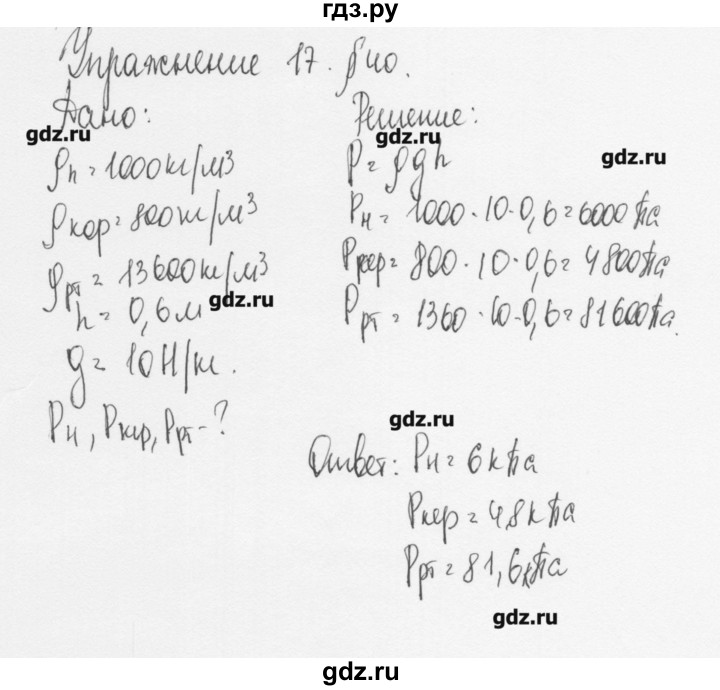 гдз.ру
Упражнение 17. §40.
Дано:
gdz.ru
ρн = 1000 кг/м³
ρкор = 800 кг/м³
ρрт = 13600 кг/м³
h = 0,6 м
gdz.ru
g = 10 Н/кг.
Pн, Pкер, Pрт - ?
Решение:
gdz.ru
gdz.ru
P = ρgh
Pн = 1000 · 10 · 0,6 = 6000 Па
Pкер = 800 · 10 · 0,6 = 4800 Па
Pрт = 1360 · 10 · 0,6 = 81600 Па.
gdz.ru
Ответ: Pн = 6 кПа
Pкер = 4,8 кПа
Pрт = 81,6 кПа
gdz.ru
gdz.ru